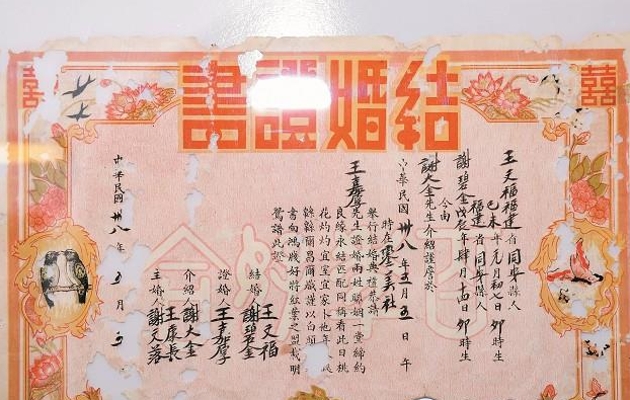 結婚證書
囍
囍
王文福 福建省同安縣人
己未年元月初七日卯時生
謝碧金 福建省同安縣人
戊辰年肆月十四日卯時生
今由
謝大金先生介紹謹詹於
中華民國卅八年五月五 午
時在 美社
舉行結婚典禮恭請
王嘉厚先生證婚兩姓聯姻一堂締約
良緣永結匹配同稱看此日桃
花灼灼宜室宜家卜他年
綿綿爾昌爾熾謹以白頭
書向鴻箋好將紅葉之盟載明
鴛譜此證
結婚人 王文福 謝碧金
證婚人 王嘉厚
介紹人 謝大金
主婚人 王康長 謝文
中華民國卅八年五月五